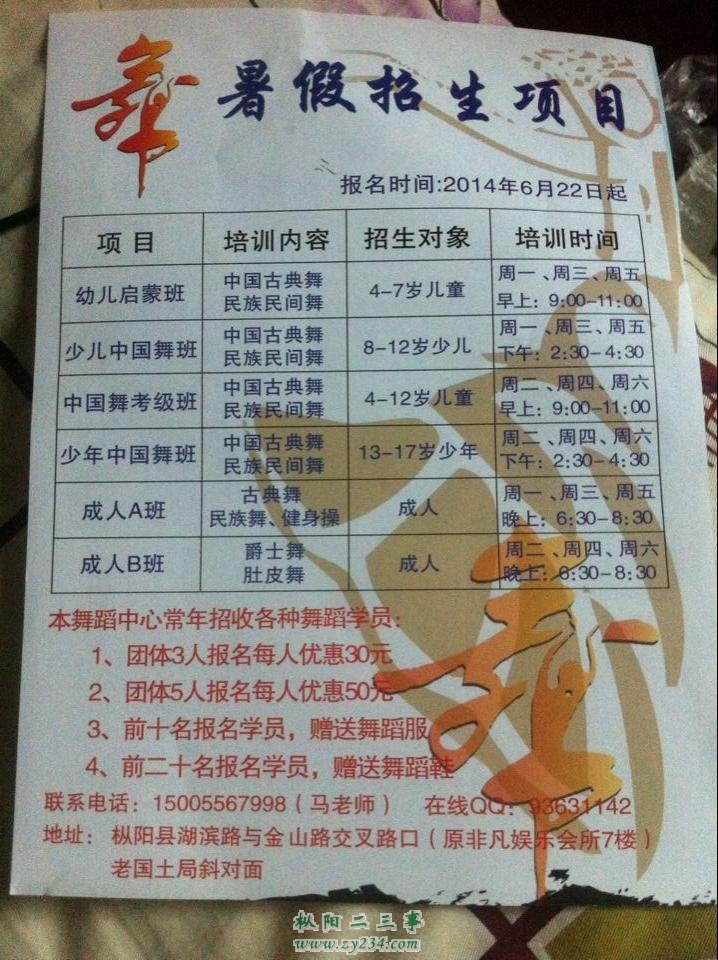 舞 暑假招生项目
报名时间:2014年6月22日起
项目 培训内容 招生对象 培训时间
幼儿启蒙班 中国古典舞 民族民间舞 4-7岁儿童 周一、周三、周五 早上：9:00-11:00
少儿中国舞班 中国古典舞 民族民间舞 8-12岁少儿 周一、周三、周五 下午：2:30-4:30
中国舞考级班 中国古典舞 民族民间舞 4-12岁儿童 周二、周四、周六 早上：9:00-11:00
少年中国舞班 中国古典舞 民族民间舞 13-17岁少年 周二、周四、周六 下午：2:30-4:30
成人A班 古典舞 民族舞、健身操 成人 周一、周三、周五 晚上：6:30-8:30
成人B班 爵士舞 肚皮舞 成人 周二、周四、周六 晚上：6:30-8:30
本舞蹈中心常年招收各种舞蹈学员：
1、团体3人报名每人优惠30元
2、团体5人报名每人优惠50元
3、前十名报名学员，赠送舞蹈服
4、前二十名报名学员，赠送舞蹈鞋
舞
联系电话：15005567998（马老师） 在线QQ：93631142
地址：枞阳县湖滨路与金山路交叉路口（原非凡娱乐会所7楼）
老国土局斜对面
枞阳二三事
www.zy234.com